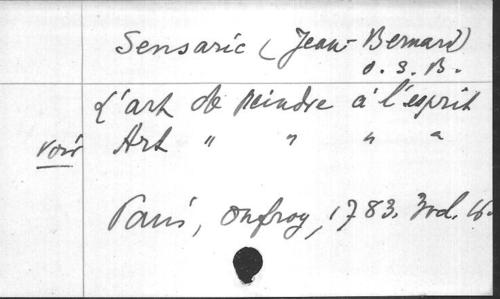 Sensaric (Jean-Bernard)
O. S. B.
L'art de peindre à l'esprit
voir Art " " " "
Paris, Onfroy, 1783. 3 vol. 16°